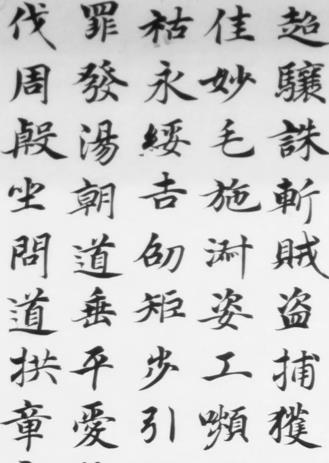 超驤誅斬賊盜捕獲
佳妙毛施淑姿工嚬
祜永綏吉劭矩步引
罪發湯朝道垂平愛
伐周殷坐問道拱章